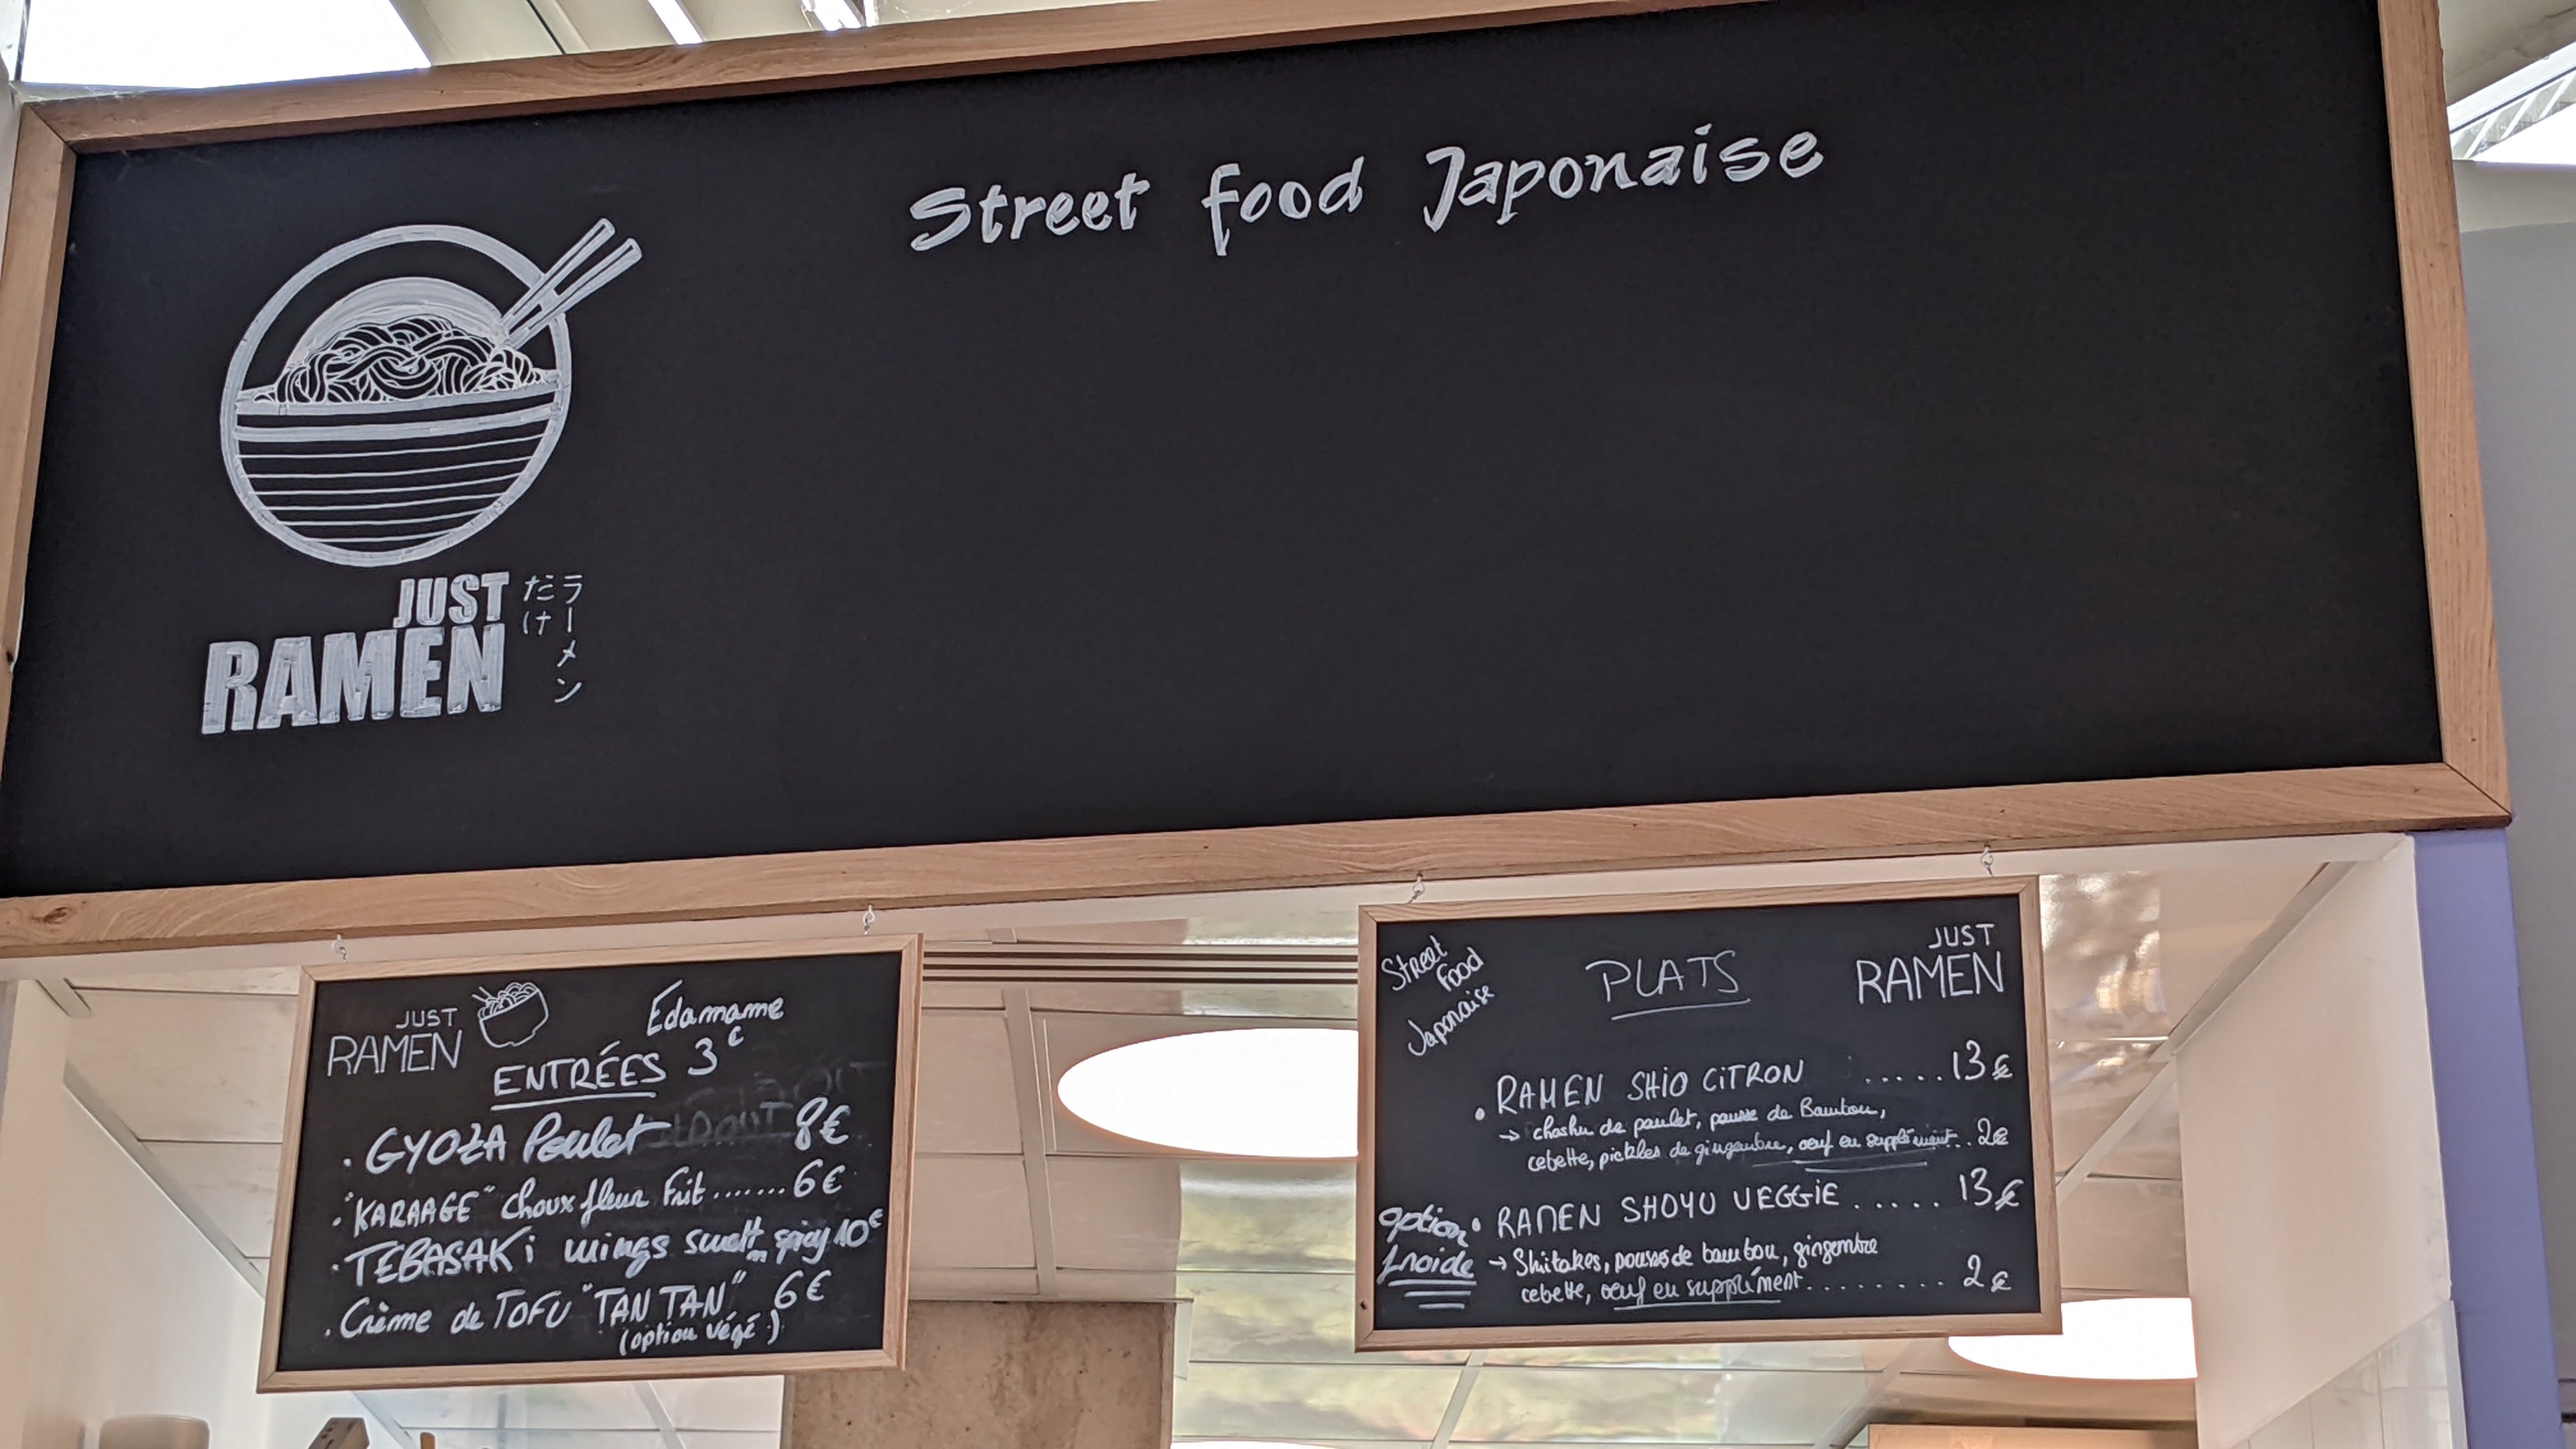 Street food Japonaise
JUST
RAMEN
ラーメン
だけ
JUST
RAMEN
Edamame
3€
ENTRÉES
. GYOZA Poulet 8€
. "KARAAGE" Choux fleur Frit ....... 6€
. TEBASAKi wings swett n spicy 10€
. Crème de TOFU "TAN TAN" 6€
(option végé)
Street
Food
Japonaise
PLATS
JUST
RAMEN
• RAMEN SHIO CiTRON ..... 13€
→ chashu de poulet, pousse de Bambou,
cebette, pickles de gingembre, oeuf en supplément .. 2€
• RAMEN SHOYU VEGGiE ..... 13€
option
froide
→ Shiitakes, pousses de bambou, gingembre
cebette, oeuf en supplément ........ 2€